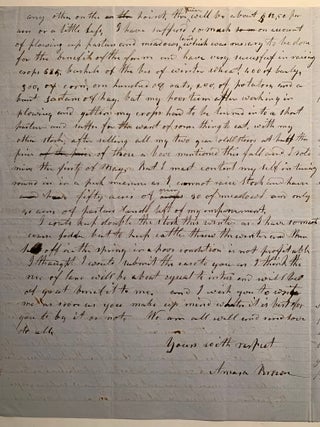 any other on the point, this will be about $12.50 per
am or a little less, I have suffers so much on account
of plowing up pasture and meadows, which was necary to be done
for the benefit of the farm and have very successful in raising
crops 625 bushels of the bes of winter wheat, 400 of barly,
300, of corn, one hundred of oats, 200, of potatoes and a
bout tons of hay. but my position after working in
plowing and getting my crops had to be turned into a short
pasture and suffer for the want of some thing to eat, with my
other stock, after selling all my two year old steers at half the
price of those a bove mentioned this fall and I sold
mine the first of May. But I must content my self in turning
round in a peck measure as I cannot raise stock and have
fifty acres of 30 of meadows and only
acres of pasture land left of my improvement.
I could keep double the stock this winter as I have so much
corse fodder but to keep cattle threw the winter and then
sell off in the spring in a poor condition is not profitable
I thought I would submit the case to you. I think the
use of land will be about equal to intrest and will be
of great benefit to me. and I wish you to write
me as soon as you make up mind whether it is best for
you to by it or not. We are all well and send love
to all.
Yours with respect
Amasa Brown